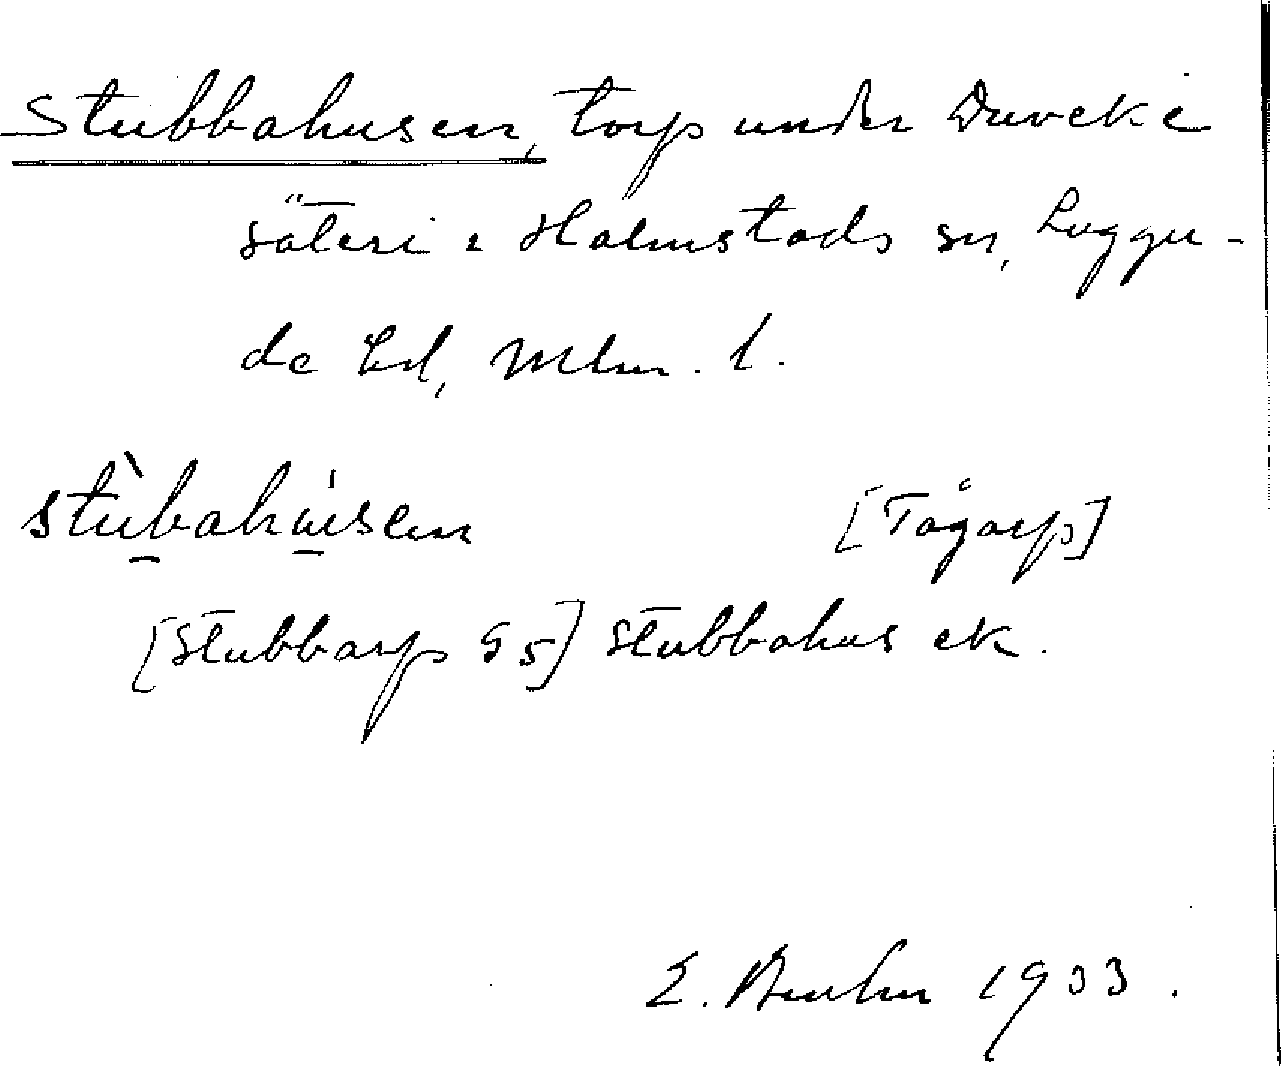 Stubbahusen, torp under Duveke
säteri i Halmstads sn, Luggu-
de hd, Mlm. l.
stùbahúsen [Tågarp]
[Stubbarp G5] Stubbahus ek.
E. Bruhn 1933.